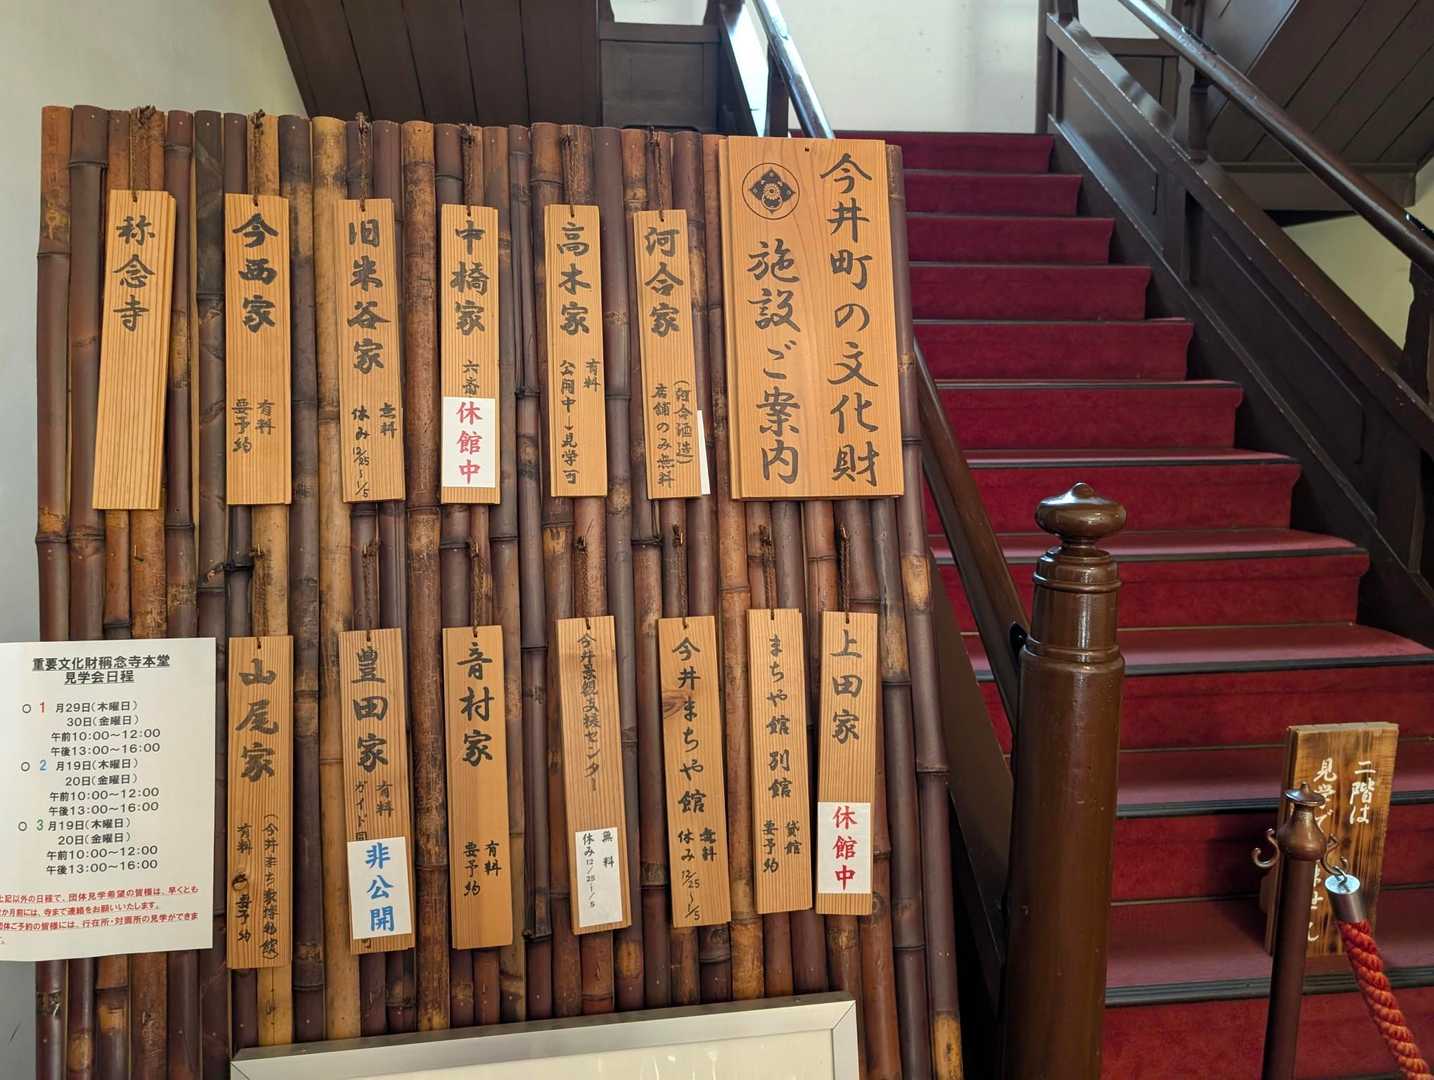 今井町の文化財
施設ご案内
河合家
(河合酒造)
店舗のみ無料
高木家
有料
公開中は見学可
中橋家
六斎
休館中
旧米谷家
無料
休み12/25〜1/5
今西家
有料
要予約
称念寺
上田家
休館中
まちや館別館
貸館
要予約
今井まちや館
無料
休み12/25〜1/5
今井景観支援センター
無料
休み12/25〜1/5
音村家
有料
要予約
豊田家
有料
ガイド同
非公開
可
山尾家
(今井まち家博物館)
有料
要予約
重要文化財稱念寺本堂
見学会日程
○ 1 月29日(木曜日)
30日(金曜日)
午前10:00〜12:00
午後13:00〜16:00
○ 2 月19日(木曜日)
20日(金曜日)
午前10:00〜12:00
午後13:00〜16:00
○ 3 月19日(木曜日)
20日(金曜日)
午前10:00〜12:00
午後13:00〜16:00
上記以外の日程で、団体見学希望の皆様は、早くとも
か月前には、寺まで連絡をお願いいたします。
団体ご予約の皆様には、行在所・対面所の見学ができま
す。
二階は
見学で
ません